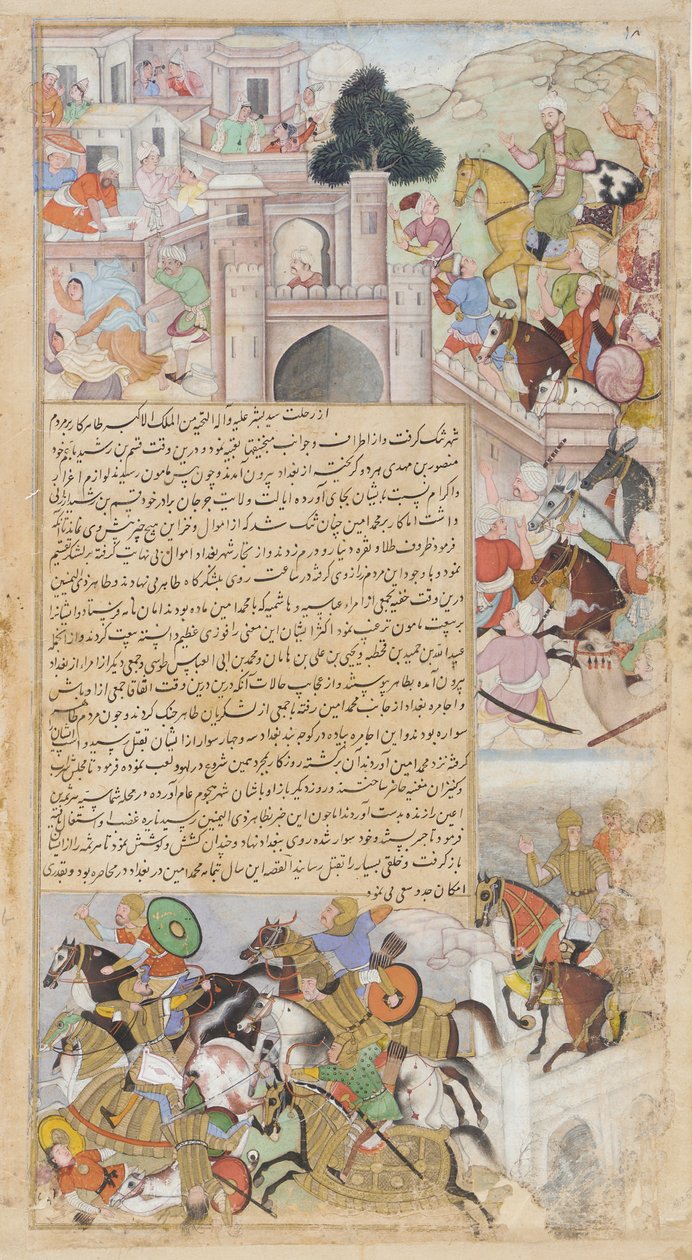 ۱۸
از رحلت سید بشر علیه و آله التحیه من الملک الاکبر طاهر کار بر مردم
شهر تنک کرفت و از اطراف و جوانب منجنیقها تعبیه نمود و درین وقت قسم بن رشید با عم خود
منصور بن مهدی هر دو کریخته از بغداد بیرون آمدند و چون پیش مامون رسیدند لوازم اعزاز
و اکرام نسبت بایشان بجای آورده ایالت ولایت جرجان برادر خود قسم بن رشید ارزانی
داشت اما کار بر محمد امین چنان تنک شد که از اموال و خزاین هیچ چیز پیش وی نماند تا آنکه
فرمود ظروف طلا و نقره دینار و درم زدند و از تجار شهر بغداد اموال بی نهایت کرفته بر لشکر تقسیم
نمود و با وجود این مردم زر از وی کرفته در ساعت روی بلشکرکاه طاهر می نهادند و طاهر ذی الیمینین
درین وقت خفیه بجمعی از امراء عباسیه و هاشمیه که با محمد امین مانده بودند امان نامه فرستاد و ایشانرا
بر بیعت مامون ترغیب نمود اکثر ایشان این معنی را فوزی عظیم دانسته بیعت کردند و از آنجمله
عبد الله بن حمید بن قحطبه و یحیی بن علی بن ماهان و محمد بن ابی العباس طوسی و جمعی دیکر از امراء از بغداد
بیرون آمده بطاهر پیوستند و از عجایب حالات آنکه درین وقت اتفاقا جمعی از اوباش
و اجامره بغداد از جانب محمد امین رفته با جمعی از لشکریان طاهر جنک کردند و چون مردم طاهر
سواره بودند و این اجامره پیاده در کوچه بند بغداد سه و چهار سوار از ایشان بقتل رسید و اسب ایشان
کرفته نزد محمد امین آوردند آن برکشته روزکار بمجرد همین شروع در لهو و لعب نموده فرمود تا مجلس شراب
و کنیزان مغنیه حاضر ساختند و روز دیکر باز اوباشان شهر هجوم عام آورده در محله شماسیه هرثمه بن
اعین را زنده بدست آوردند اما چون این خبر بطاهر ذی الیمینین رسید نایره غضب او اشتعال یافته
فرمود تا جسر بستند و خود سوار شده روی ببغداد نهاد و چندان کشش و کوشش نمود تا هرثمه را از ایشان
باز کرفت و خلقی بسیار را بقتل رسانید القصه این سال تمام محمد امین در بغداد در محاصره بود و بقدری
امکان جد و سعی می نمود